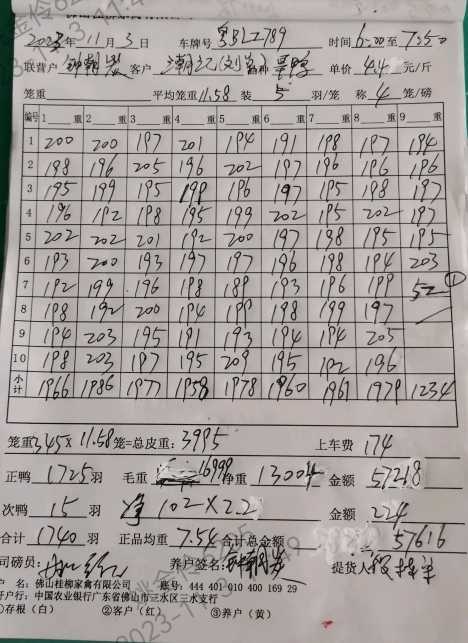 2023年11月3日 车牌号 粤BLZ789 时间6:00至7:50
联营户 客户 品种 单价 4.4 元/斤
笼重 平均笼重11.58 装 5 羽/笼 称 4 笼/磅
编号 1 重 2 重 3 重 4 重 5 重 6 重 7 重 8 重 9 重
1 200 200 197 201 194 191 198 197 194
2 198 196 205 196 202 197 196 196 196
3 195 199 195 199 196 197 195 198 197
4 196 192 198 195 199 202 195 202 197
5 202 202 201 192 200 197 198 195 195
6 193 200 193 197 197 196 198 194 203
7 192 199 196 198 189 193 196 199 52 ①
8 198 192 200 194 199 198 199 197
9 194 203 195 191 193 194 194 205
10 198 203 197 195 209 195 192 196
小计 1966 1986 1977 1958 1978 1960 1961 1979 1234
笼重345×11.58笼=总皮重:3995 上车费 174
正鸭 1725 羽 毛重 16999 净重 13004 金额 57218
次鸭 15 羽 净 102×2.2 金额 224
合计 1740 羽 正品均重 7.54 合计总金额 57616
司磅员: 养户签名: 提货人
户 名:佛山桂柳家禽有限公司 账号:444 401 010 400 169 29
开户行:中国农业银行广东省佛山市三水区三水支行
①存根(白) ②客户(红) ③养户(黄)